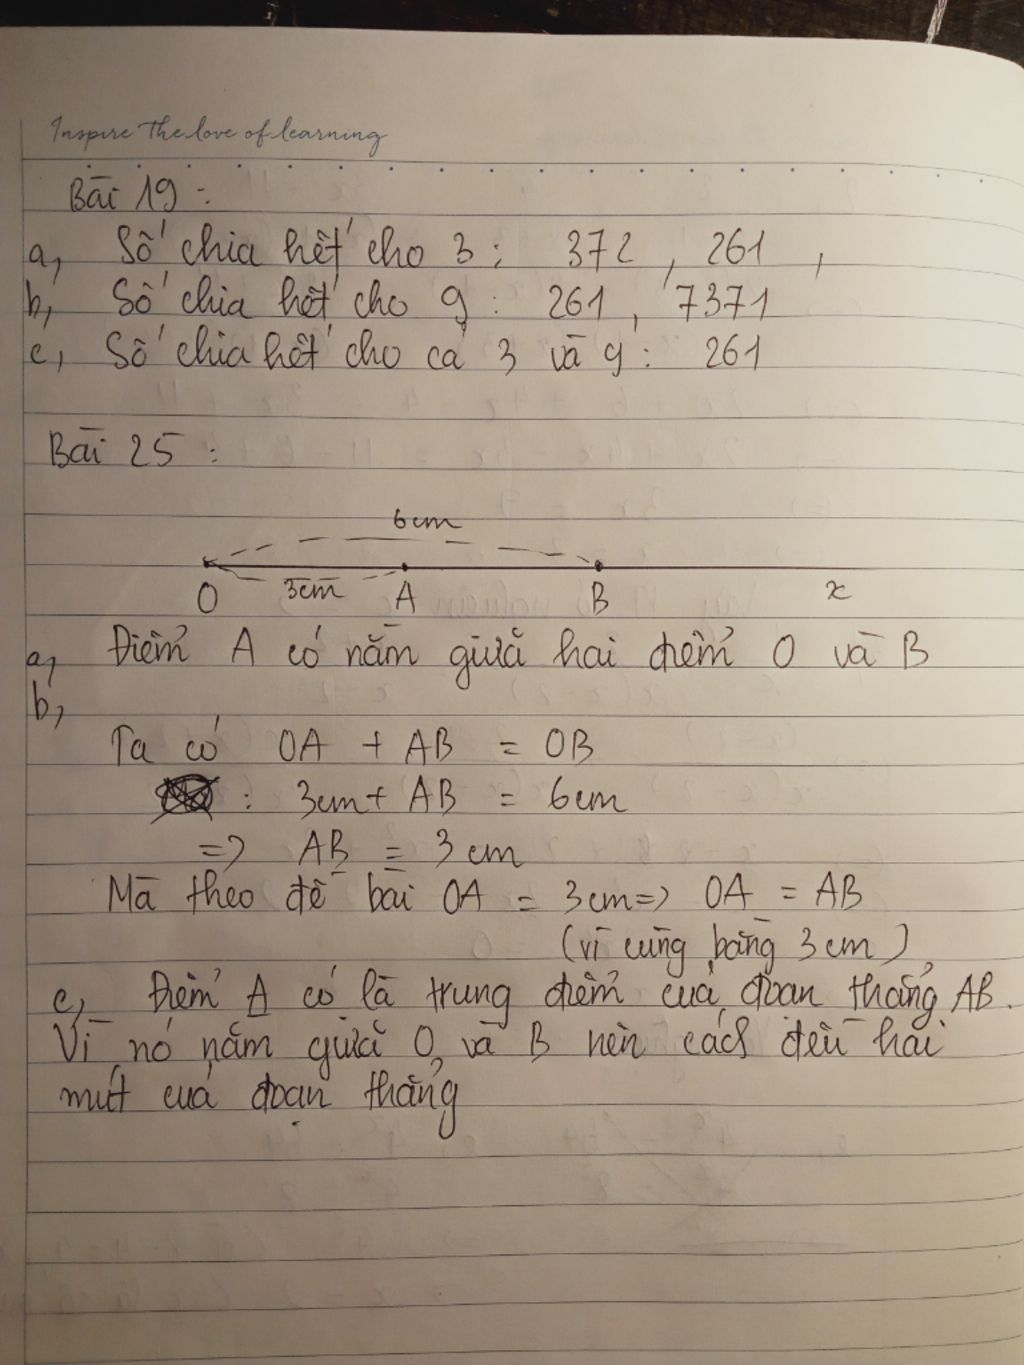 Inspire the love of learning
Bài 19 :
a, Số chia hết cho 3 : 372 , 261 ,
b, Số chia hết cho 9 : 261 , 7371
c, Số chia hết cho cả 3 và 9 : 261
Bài 25 :
6cm
3cm
O A B x
a, Điểm A có nằm giữa hai điểm O và B
b,
Ta có OA + AB = OB
: 3cm + AB = 6cm
=> AB = 3cm
Mà theo đề bài OA = 3cm => OA = AB
(vì cùng bằng 3cm)
c, Điểm A có là trung điểm của đoạn thẳng AB.
Vì nó nằm giữa O và B nên cách đều hai
mút của đoạn thẳng